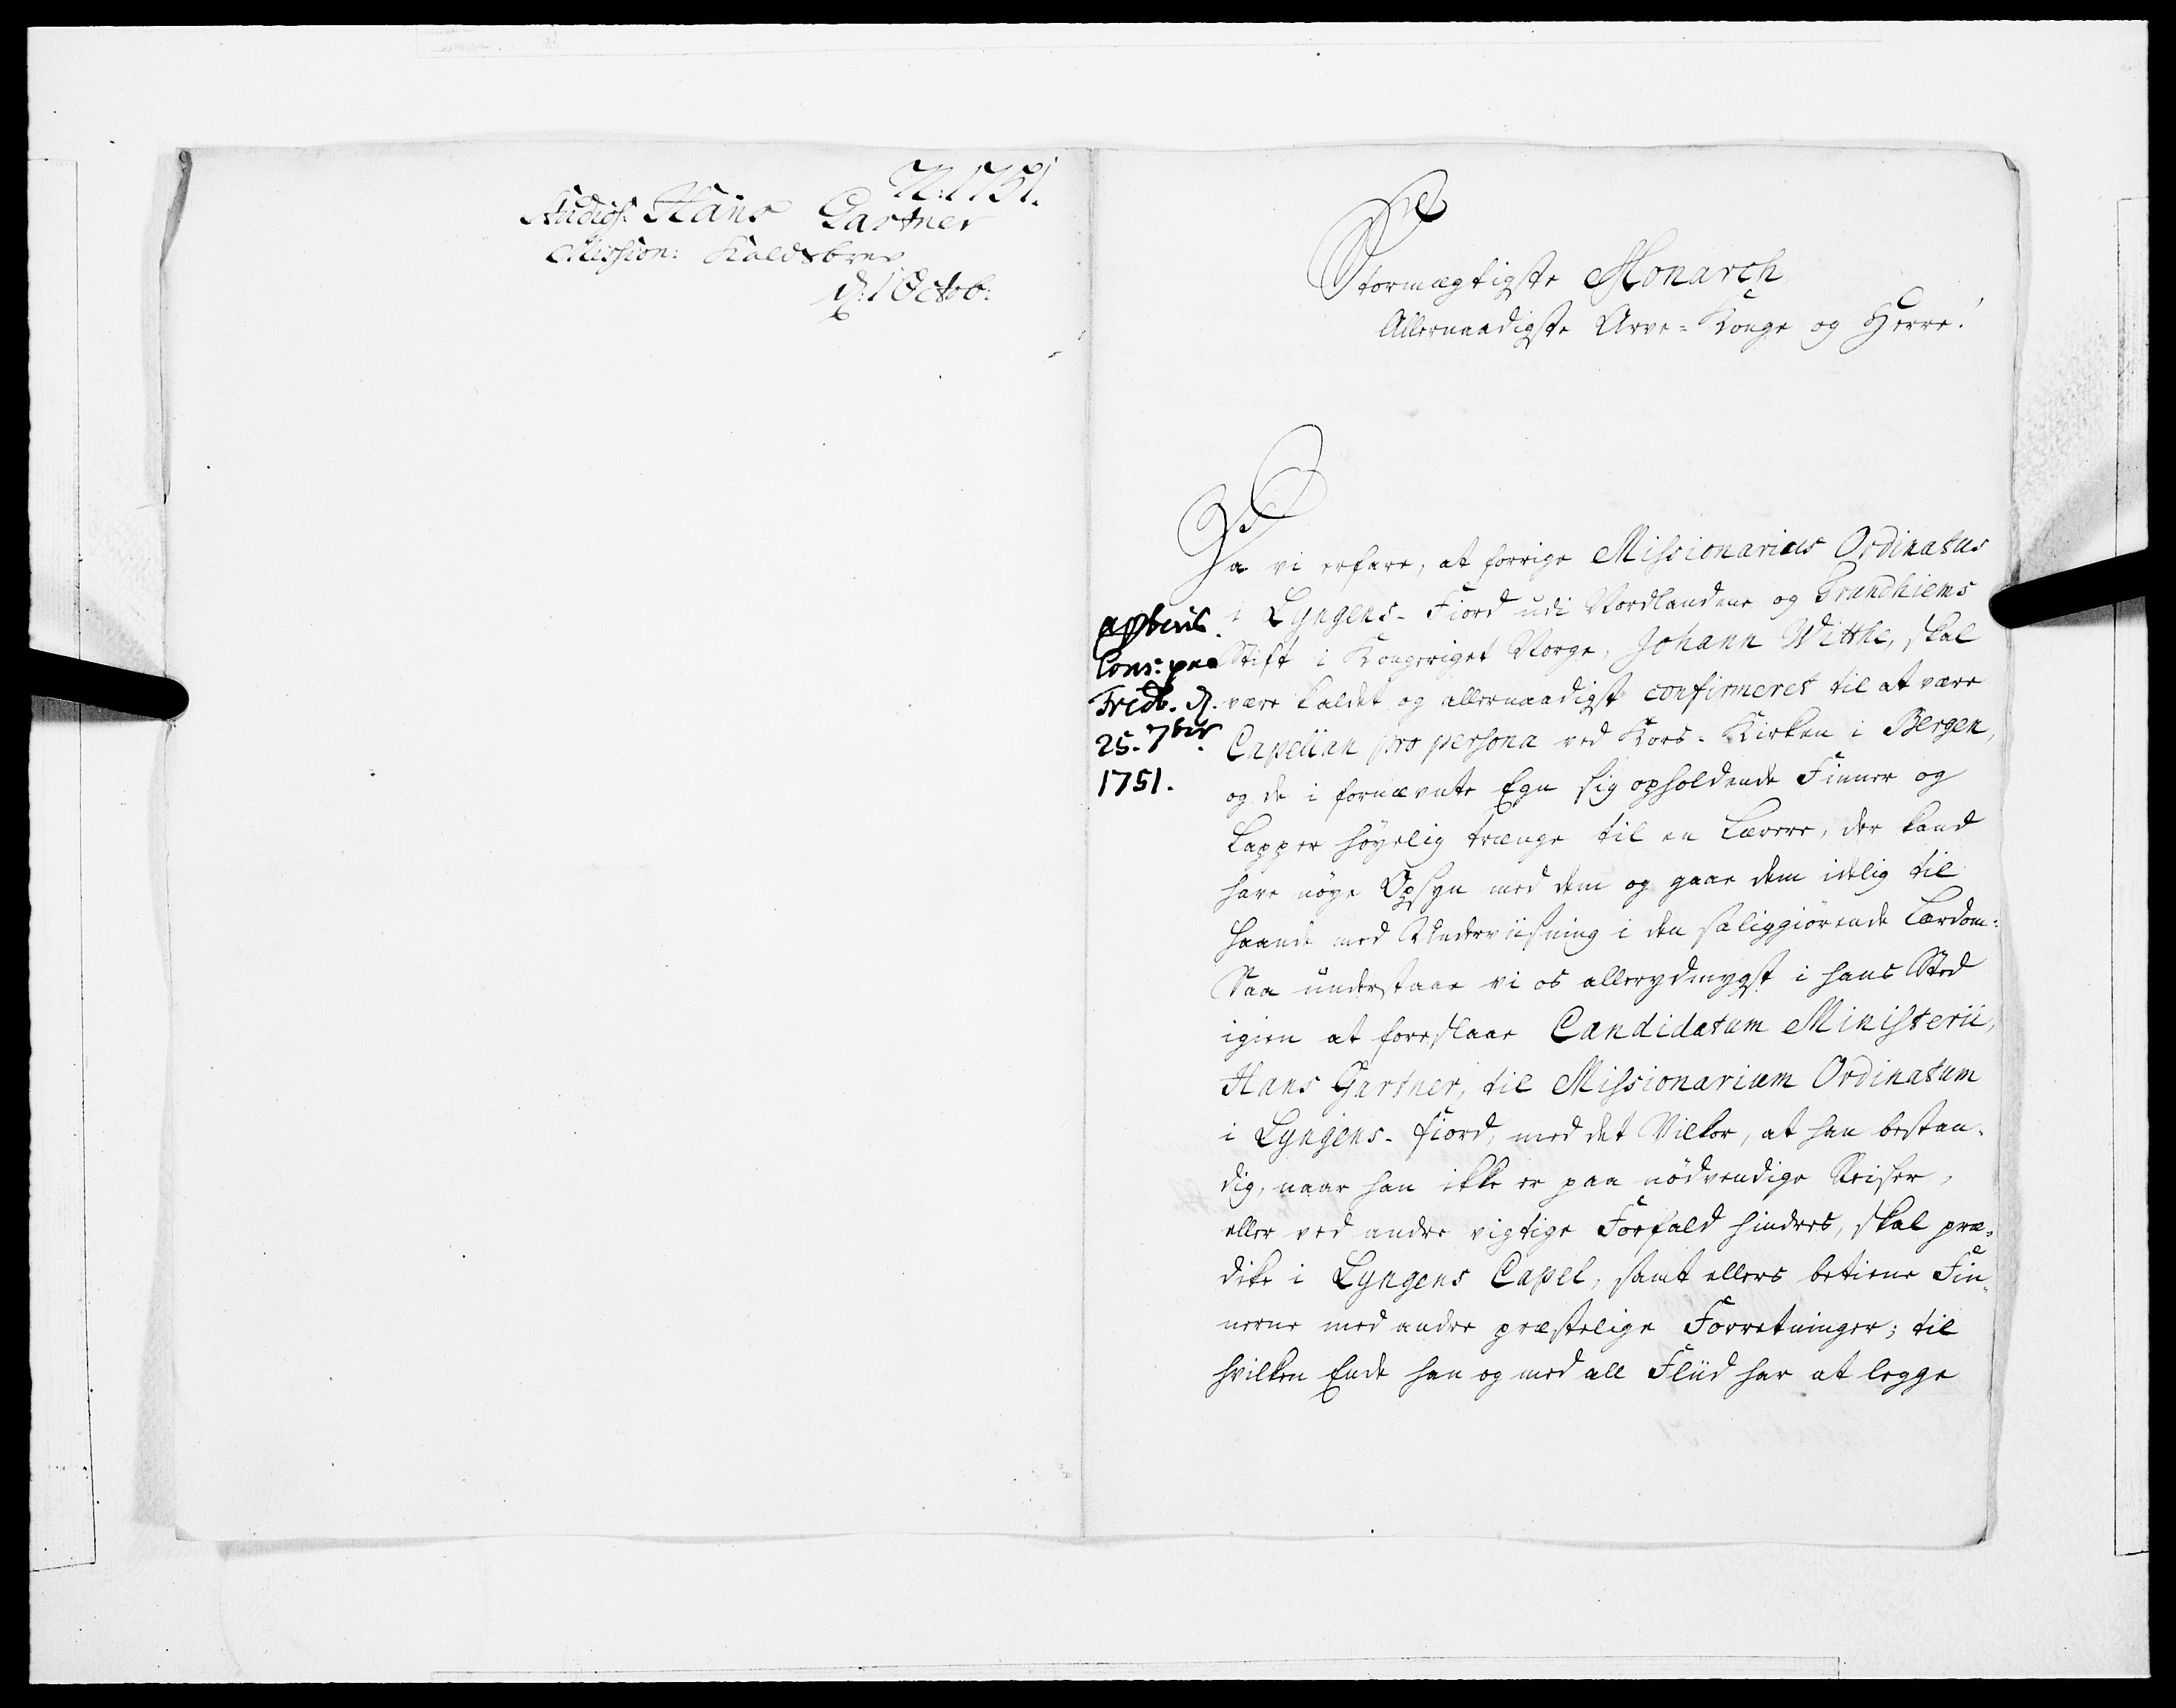 72. 1751.
Studios: Hans Gartner
Mission: Kaldsbrev
d: 1 Octob:
Stormægtigste Monarch
Allernaadigste Arve-Konge og Herre!
Da vi erfare, at forrige Missionarius Ordinatus
i Lyngens-Fiord udi Nordlandene og Trundhiems
Stift i Kongeriget Norge, Johann Witthe, skal
være kaldet og allernaadigst confirmeret til at være
Capellan pro persona ved Kors-Kirken i Bergen,
og de i fornævnte Egn sig opholdende Finner og
Lapper høyelig trænge til en Lærere, der kand
have nøye Opsyn med dem og gaae dem idelig til
Haande med Underviisning i den saliggiørende Lærdom:
Saa understaae vi os allerydmygst i hans Sted
igien at foreslaae Candidatum Ministerii,
Hans Gartner, til Missionarium Ordinatum
i Lyngens-fiord, med det Vilkor, at han bestan-
dig, naar han ikke er paa nødvendige Reiser,
eller ved andre vigtige Forfald hindres, skal præ-
dike i Lyngens Capel, samt ellers betiene Fin-
nerne med andre præstelige Forretninger; til
hvilken Ende han og med all Fliid har at legge
apberet.
Cons: paa
Fridb. d.
25. 7bris
1751.